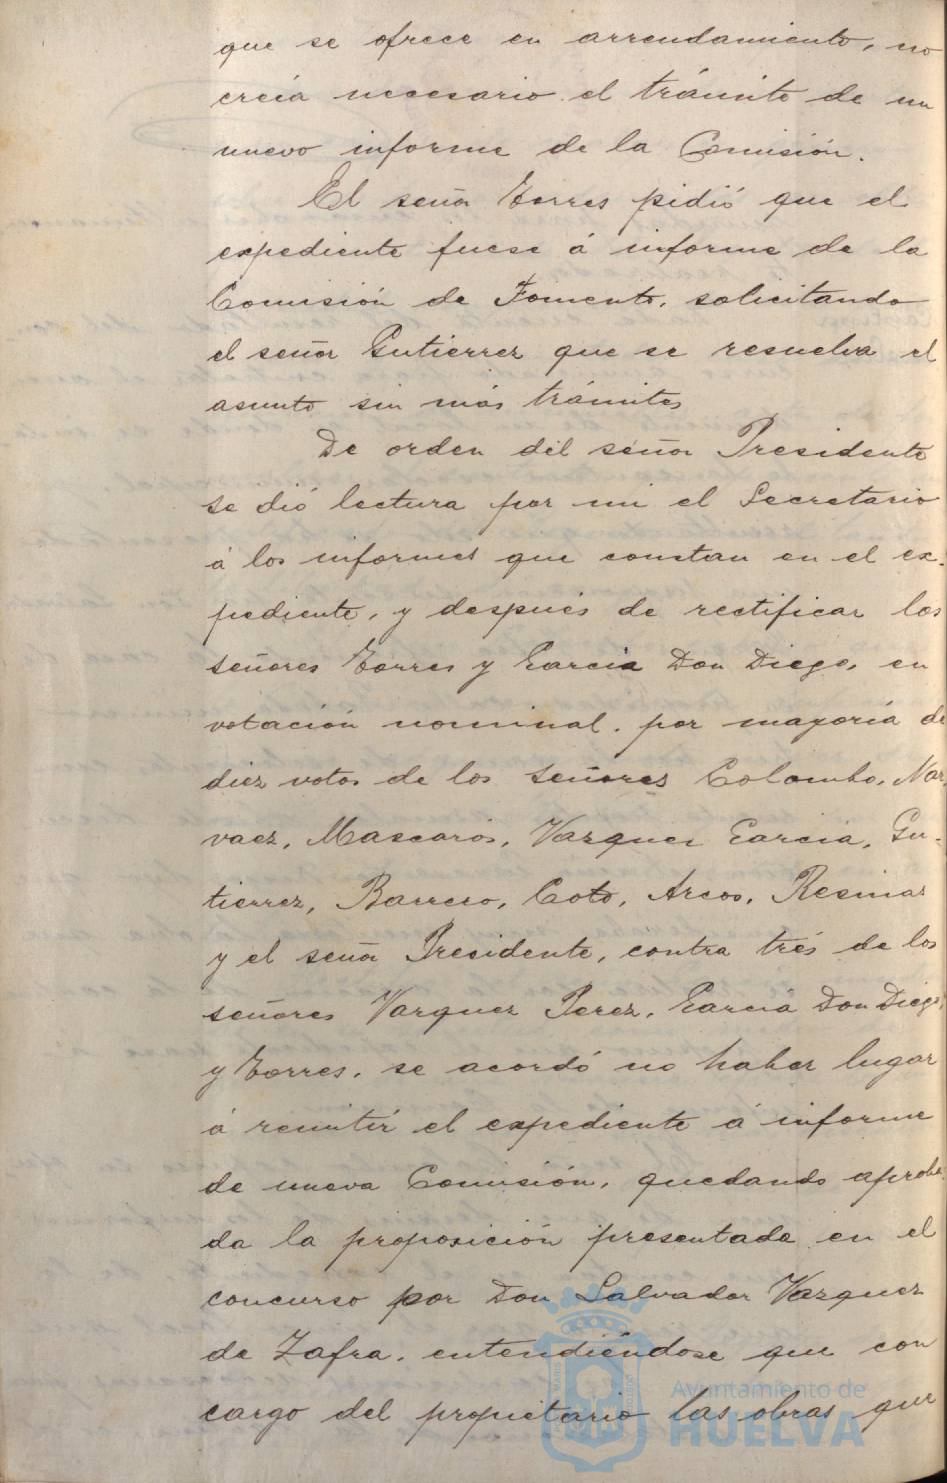 que se ofrece en arrendamiento, no
creía necesario el trámite de un
nuevo informe de la Comisión.
El señor Torres pidió que el
expediente fuese á informe de la
Comisión de Fomento, solicitando
el señor Gutierrez que se resuelva el
asunto sin más trámites
De orden del señor Presidente
se dió lectura por mi el Secretario
á los informes que constan en el ex-
pediente, y después de rectificar los
señores Torres y Garcia Don Diego, en
votación nominal, por mayoría de
diez votos de los señores Colombo, Nar-
vaez, Mascarós, Vazquez Garcia, Gu-
tierrez, Barrero, Coto, Arcos, Resinas
y el señor Presidente, contra trés de los
señores Vazquez Perez, García Don Diego,
y Torres, se acordó no haber lugar
á remitir el expediente á informe
de nueva Comisión, quedando aproba-
da la proposición presentada en el
concurso por Don Salvador Vazquez
de Zafra, entendiéndose que con
cargo del propietario las obras que
Ayuntamiento de
HUELVA